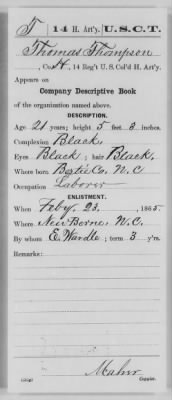 T 14 H. Art'y. U.S.C.T.
Thomas Thompson
, Co. H, 14 Reg't U. S. Col'd H. Art'y.
Appears on
Company Descriptive Book
of the organization named above.
DESCRIPTION.
Age 21 years; height 5 feet 3 inches.
Complexion Black
Eyes Black; hair Black.
Where born Bertie Co, N.C
Occupation Laborer
ENLISTMENT.
When Feby. 23, 1865
Where New Berne, N.C.
By whom E. Wardle; term 3 y'rs.
Remarks:
Copyist.